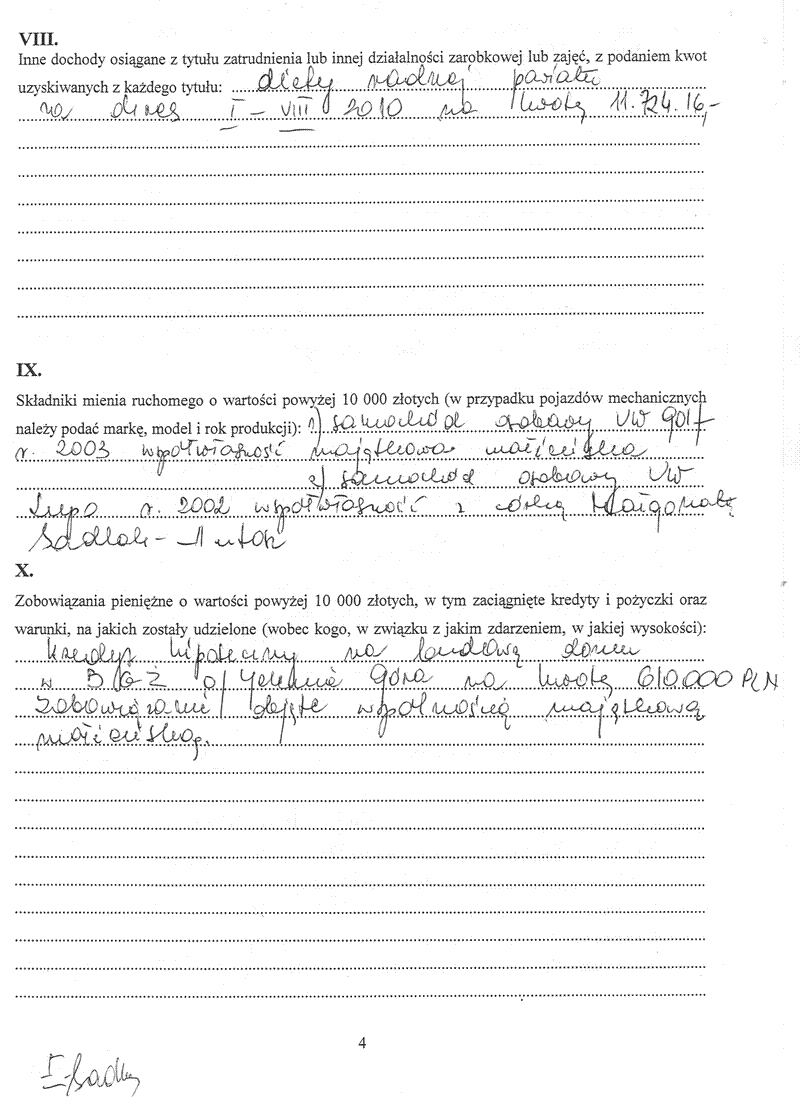 VIII.
Inne dochody osiągane z tytułu zatrudnienia lub innej działalności zarobkowej lub zajęć, z podaniem kwot
uzyskiwanych z każdego tytułu: diety radnej powiatu
na okres I – VIII 2010 na kwotę 11.724.16,-
IX.
Składniki mienia ruchomego o wartości powyżej 10 000 złotych (w przypadku pojazdów mechanicznych
należy podać markę, model i rok produkcji): 1) samochód osobowy VW golf
r. 2003 współwłasność majątkowa małżeńska
2) samochód osobowy VW
Lupo r. 2002 współwłasność z córką Małgorzatą
Sadlak-
X.
Zobowiązania pieniężne o wartości powyżej 10 000 złotych, w tym zaciągnięte kredyty i pożyczki oraz
warunki, na jakich zostały udzielone (wobec kogo, w związku z jakim zdarzeniem, w jakiej wysokości):
kredyt hipoteczny na budowę domu
w BGŻ o/Jelenia Góra na kwotę 610.000 PLN
zobowiązanie objęte wspólnością majątkową
małżeńską.
4